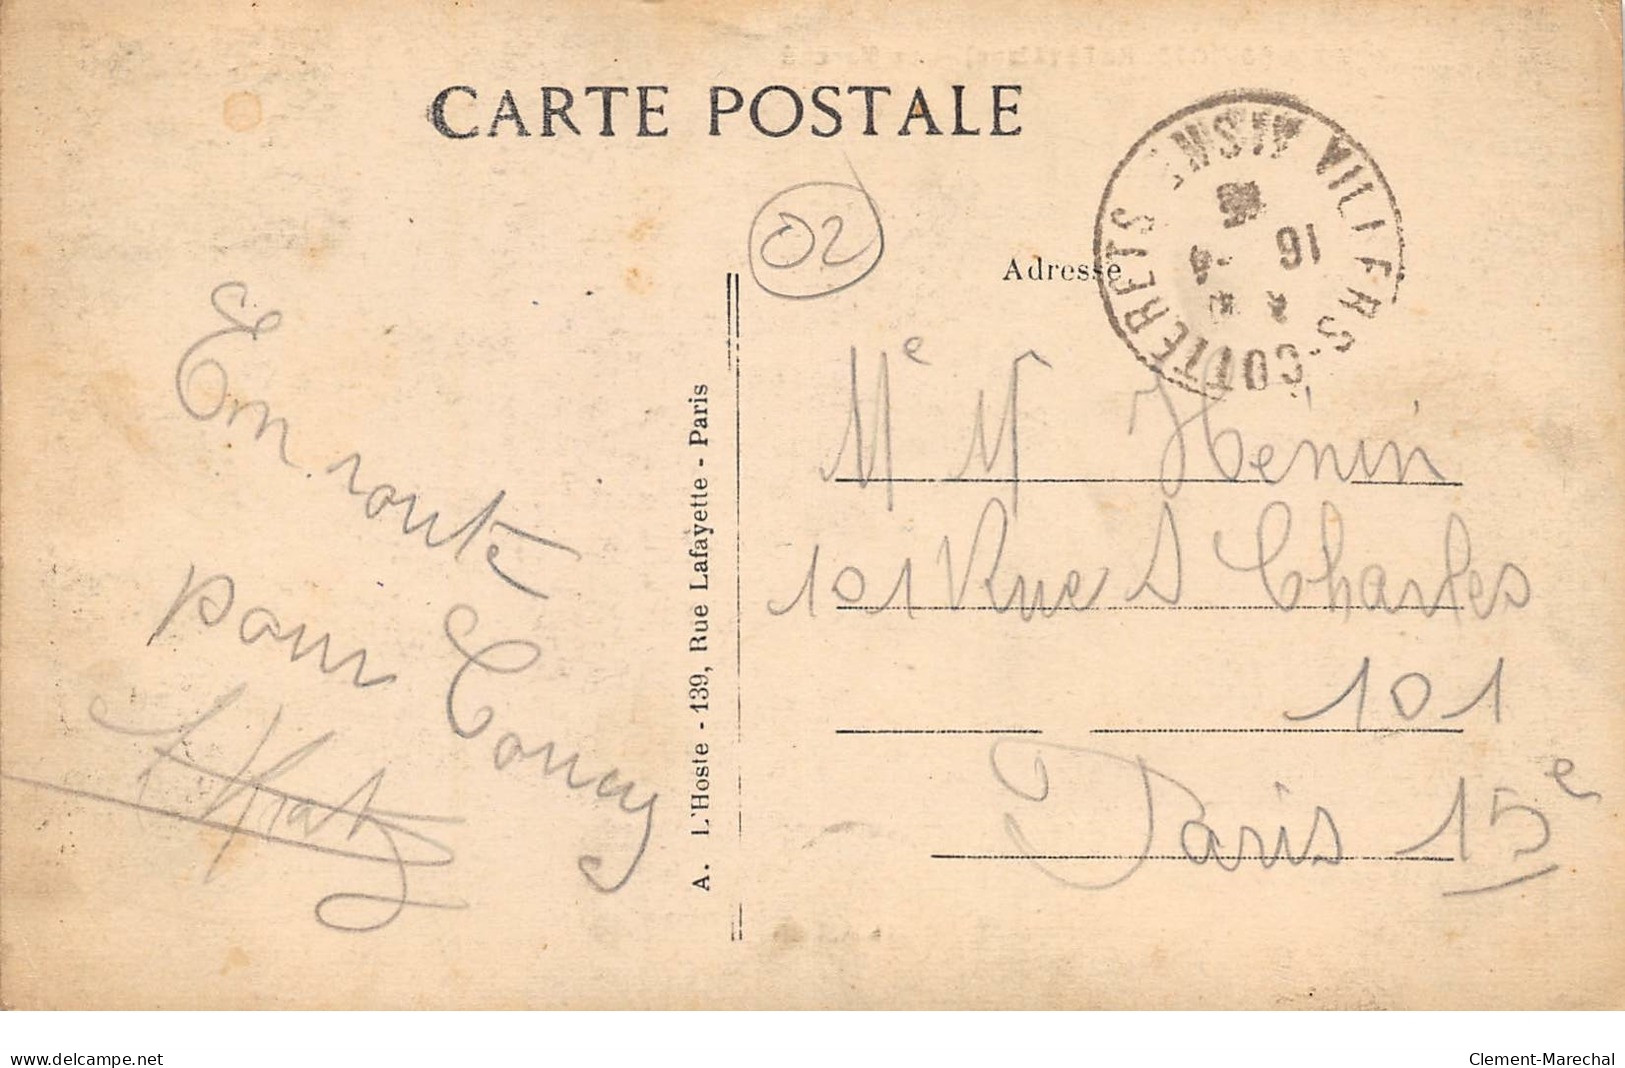 CARTE POSTALE
02
VILLERS-COTTERETS AISNE
16
Adresse
En route
pour Coucy
A. L'Hoste - 139, Rue Lafayette - Paris
Me M Hénin
101 Rue St Charles
101
Paris 15e
delcampe.net
Clement-Marechal